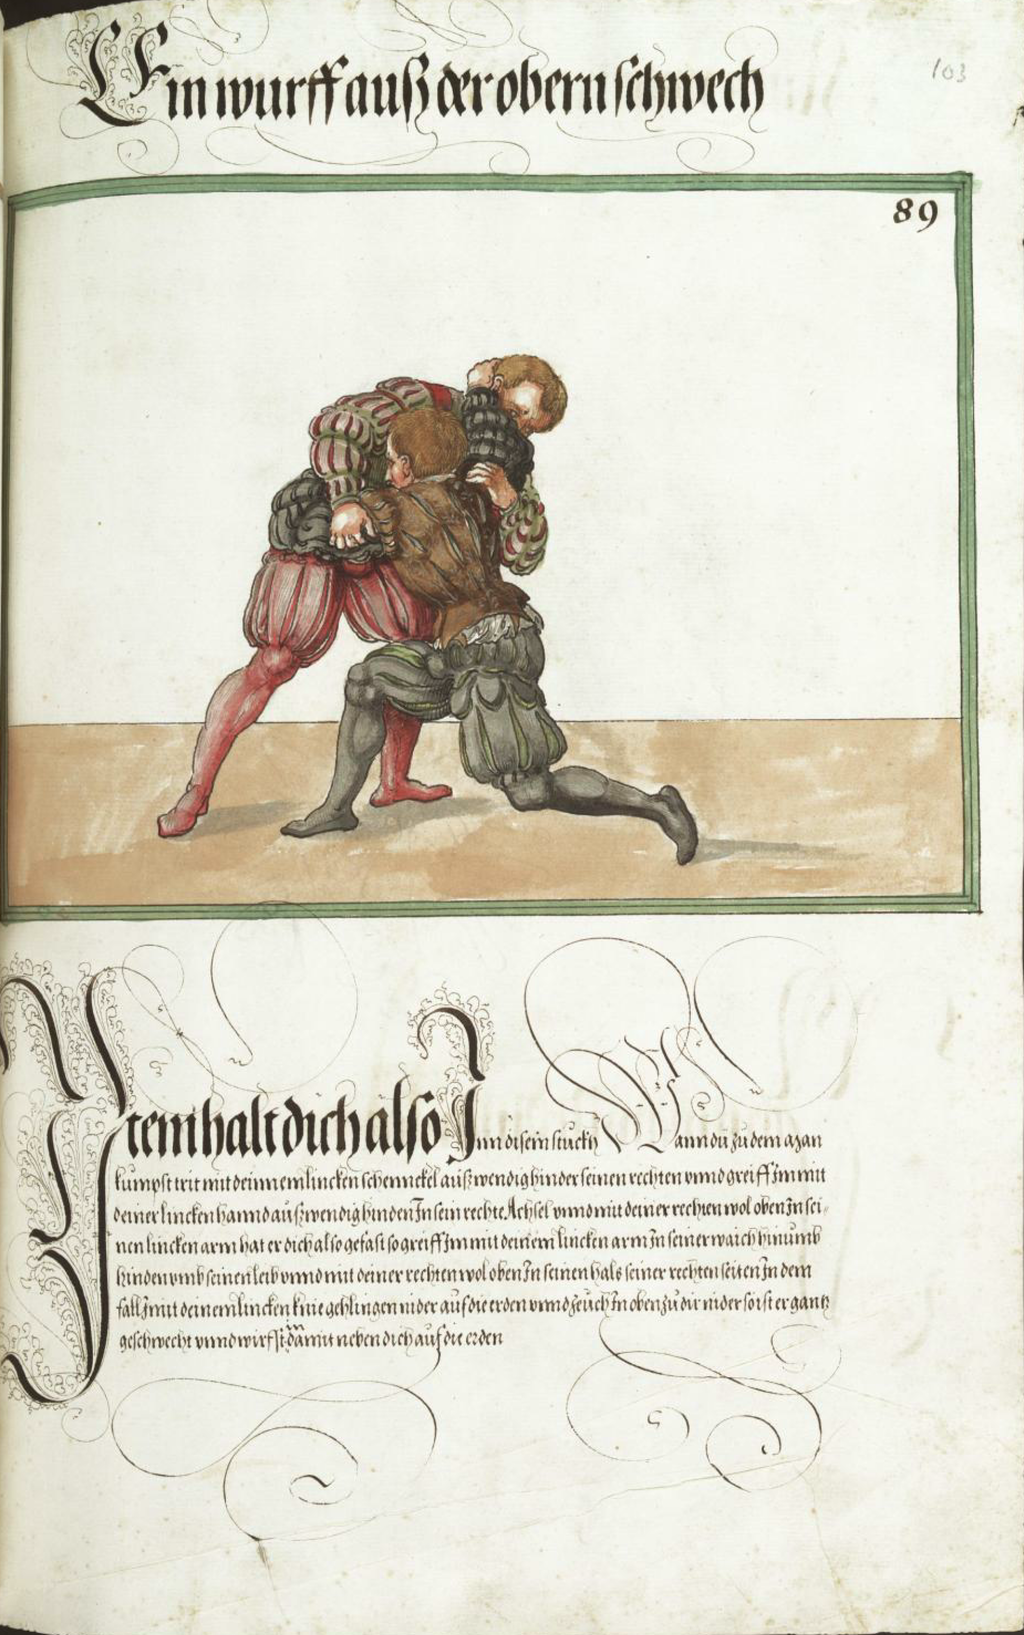 Ein wurff auß der obern schwech
103
89
Item halt dich also Inn disem stuckh Wann du zu dem azan
kumpst trit mit deinnem lincken schennckel außwendig hinder seinen rechten vnnd greiff Im mit
deiner lincken hannd außwendig hinden In sein rechte Achsel vnnd mit deiner rechten wol oben In sei-
nen lincken arm hat er dich also gefast so greiff Im mit deinem lincken arm In seiner waich hinumb
hinden vmb seinen leib vnnd mit deiner rechten wol oben In seinen hals seiner rechten seiten In dem
fall mit deinem lincken knie gehlingen nider auf die erden vnnd zeuch In oben zu dir nider so ist er gantz
geschwecht vnnd wirfst damit neben dich auf die erden